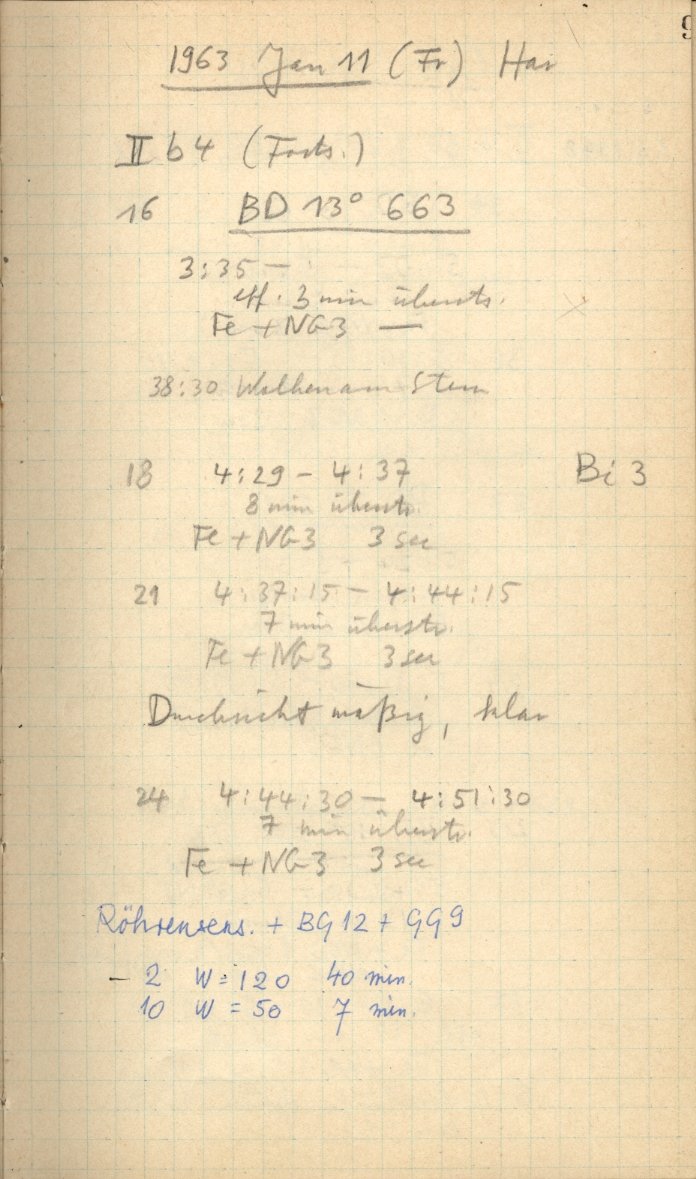 9
1963 Jan 11 (Fr) Har
II b 4 (Forts.)
16 BD 13° 663
3:35 —
eff. 3 min überstr.
Fe + NG3 —
38:30 Wolken am Stern
18 4:29 – 4:37 Bi 3
8 min überstr.
Fe + NG3 3 sec
21 4:37:15 – 4:44:15
7 min überstr.
Fe + NG3 3 sec
Durchsicht mäßig, klar
24 4:44:30 – 4:51:30
7 min überstr.
Fe + NG3 3 sec
Röhrensens. + BG12 + GG9
– 2 W = 120 40 min.
10 W = 50 7 min.